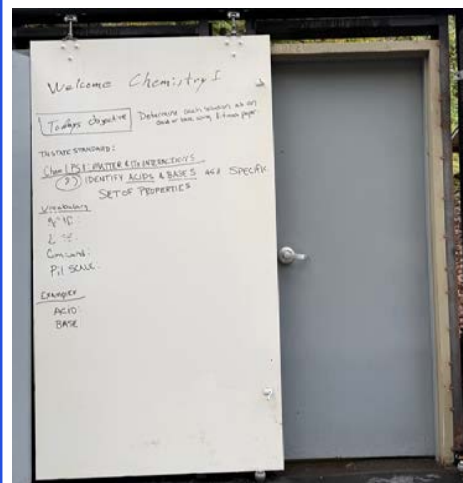 Welcome Chemistry I
Todays objective
Determine each solution as an
acid or base using litmus paper.
TN STATE STANDARD:
Chem I PS1: MATTER & Its INTERACTIONS
IDENTIFY ACIDS & BASES as a SPECIFIC
SET OF PROPERTIES
Vocabulary
PH SCALE:
EXAMPLES
ACID
BASE